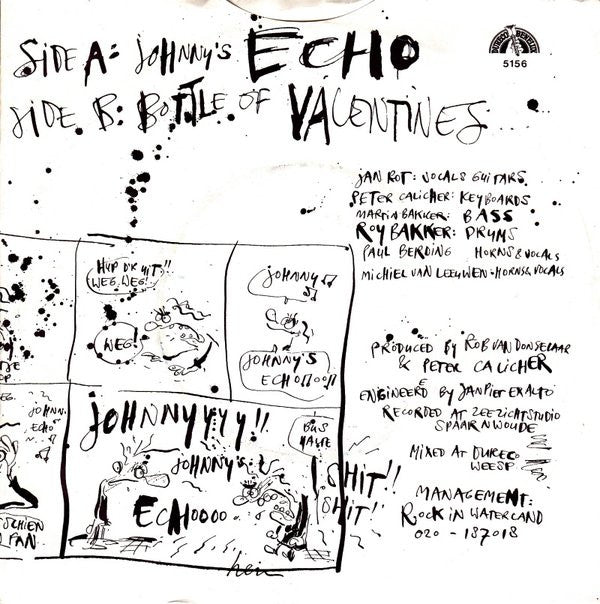 SIDE A: JOHNNY'S ECHO
SIDE B: BOTTLE OF VALENTINES
5156
JAN ROT: VOCALS GUITARS
PETER CALICHER: KEYBOARDS
MARTIN BAKKER: BASS
ROY BAKKER: DRUMS
PAUL BERDING HORNS & VOCALS
MICHIEL VAN LEEUWEN - HORNS & VOCALS
PRODUCED BY ROB VAN DONSELAAR
& PETER CALICHER
ENGINEERED BY JAN PIET EXALTO
RECORDED AT ZEEZICHTSTUDIO
SPAARNWOUDE
MIXED AT DURECO
WEESP
MANAGEMENT:
ROCK IN WATERLAND
020 - 187018
HUP D'R UIT!!
WEG, WEG!
WEG!
JOHNNY
JOHNNY'S
ECHO
JOHN
ECHO
JOHNNYYYY!!
JOHNNY'S
ECHOOOO..
BUS
HALTE
SHIT!!
SHIT!
hein